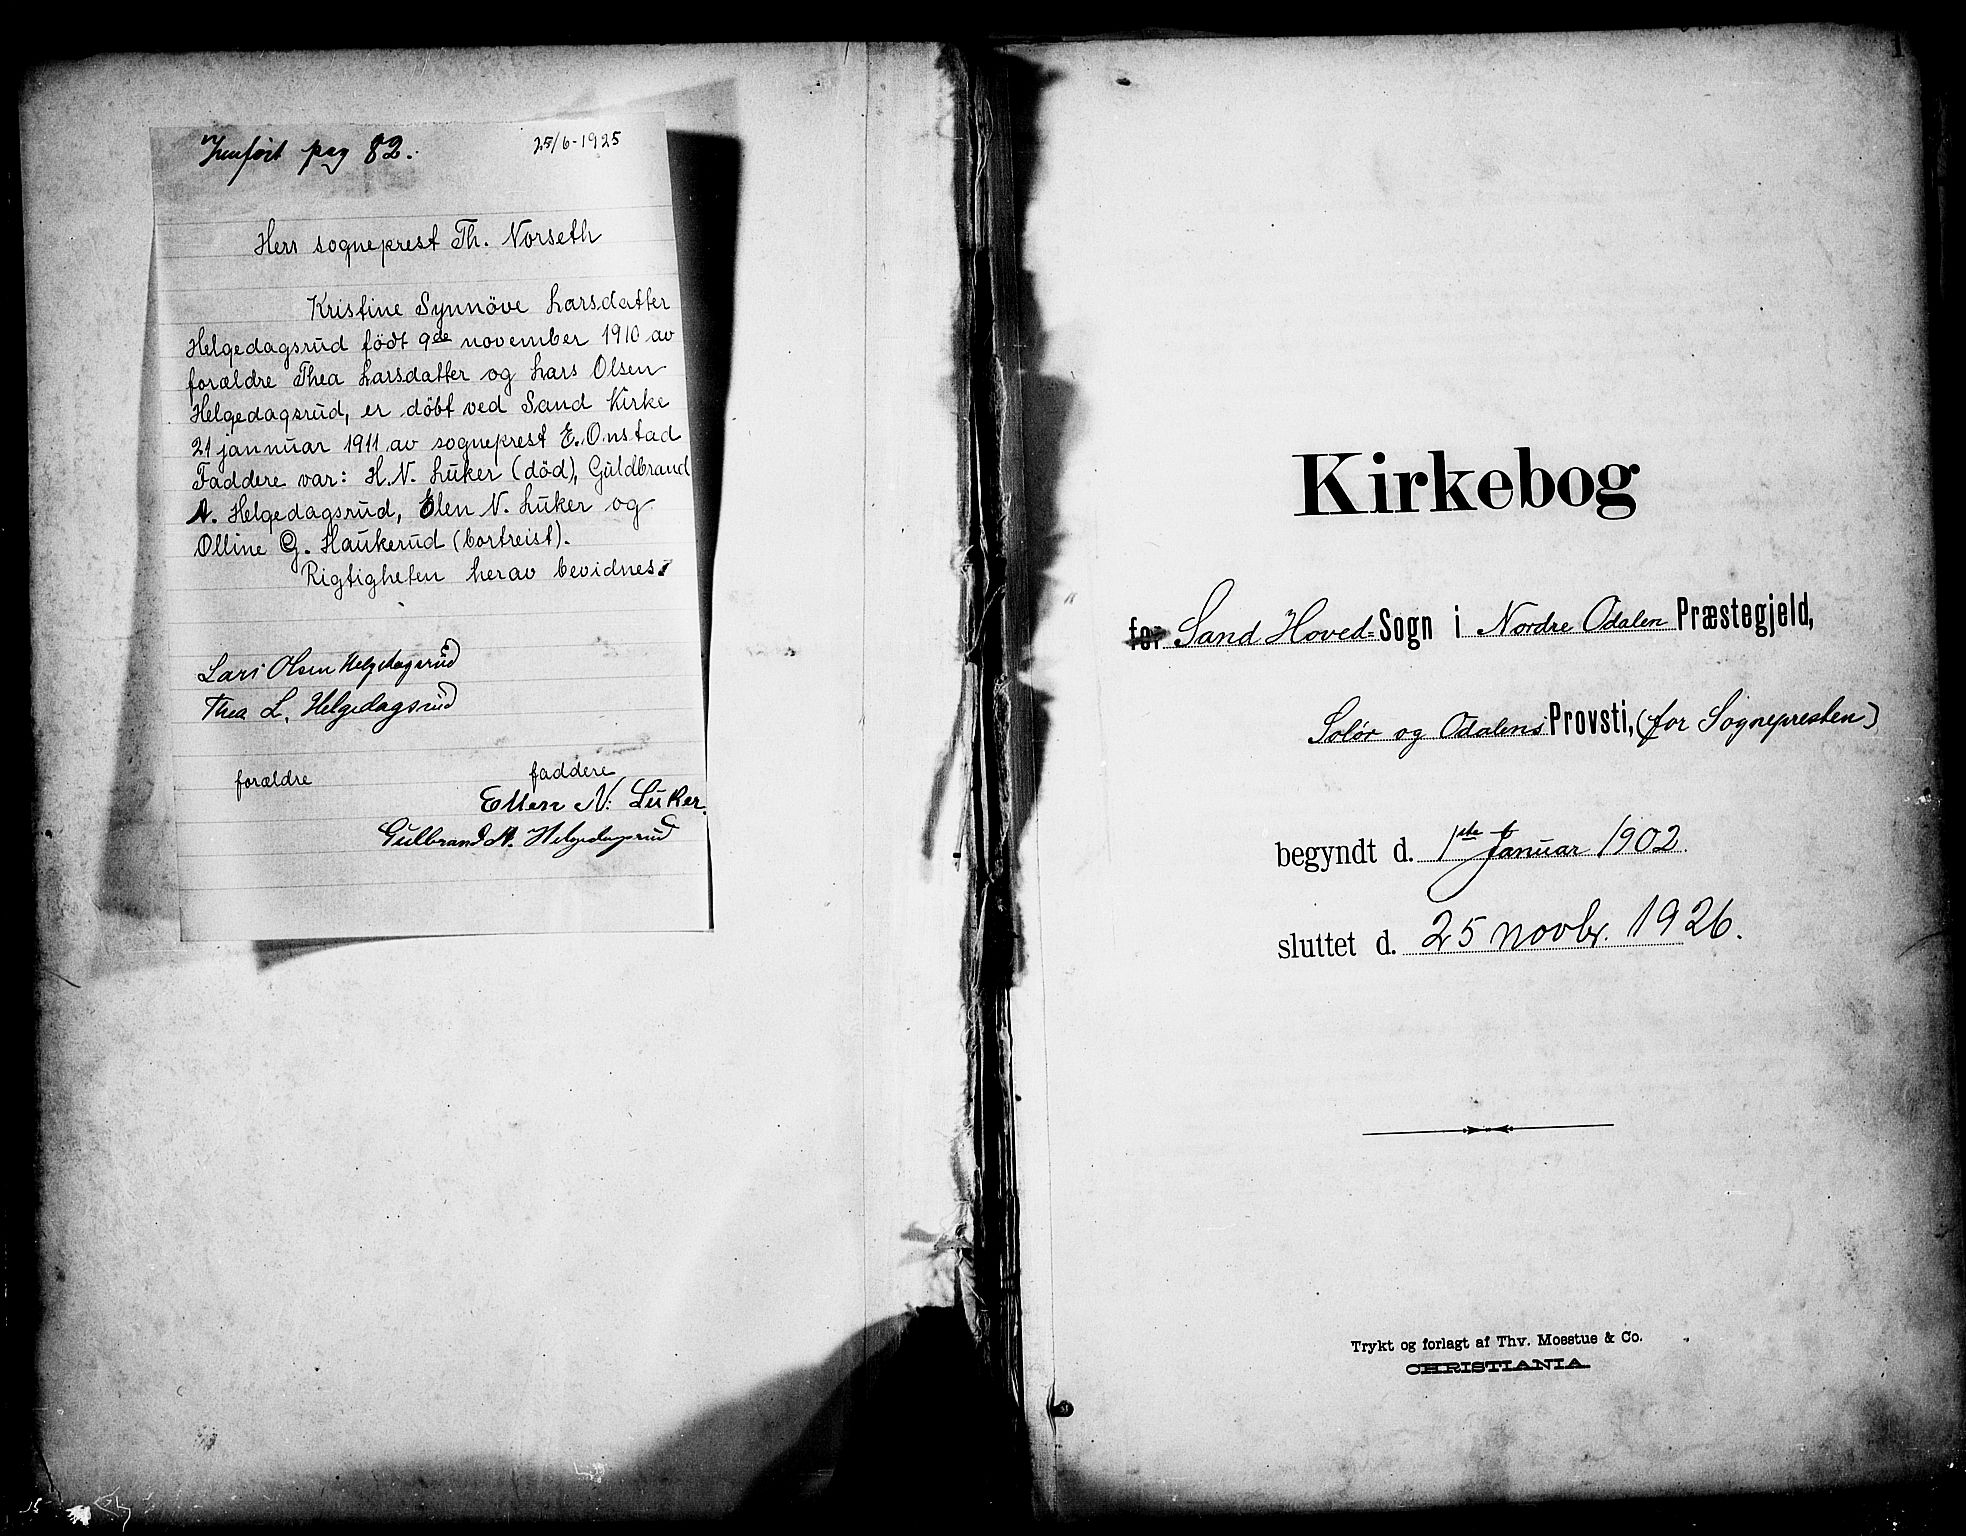 Innført pag 82.
25/6-1925
Herr sogneprest Th. Norseth
Kristine Synnöve Larsdatter
Helgedagsrud födt 9de november 1910 av
forældre Thea Larsdatter og Lars Olsen
Helgedagsrud, er döbt ved Sand Kirke
21 jannuar 1911 av sogneprest E. Onstad
Faddere var: H. N. Luker (död), Guldbrand
A. Helgedagsrud, Elen N. Luker og
Olline G. Haukerud (bortreist).
Rigtigheten herav bevidnes.
Lars Olsen Helgedagsrud
Thea L. Helgedagsrud
forældre
faddere
Ellen N. Luker.
Gulbrand A. Helgedagsrud
1
Kirkebog
for Sand Hoved-Sogn i Nordre Odalen Præstegjeld,
Solør og Odalens Provsti, (for Sognepresten)
begyndt d. 1ste Januar 1902.
sluttet d. 25 novbr. 1926.
Trykt og forlagt af Thv. Moestue & Co.
CHRISTIANIA